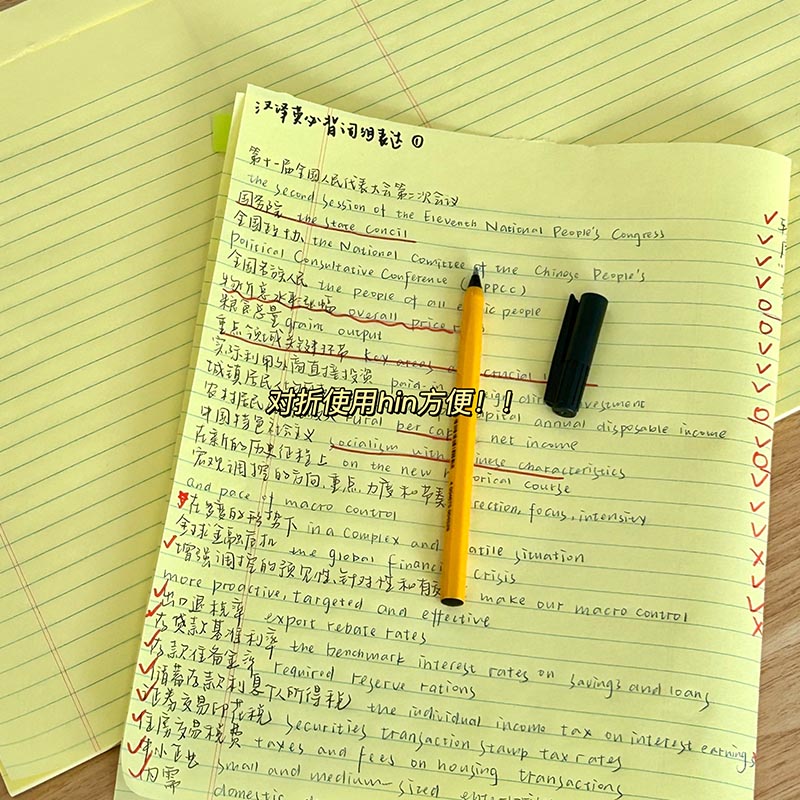 汉译英必背词组表达①
第十一届全国人民代表大会第二次会议
the second session of the Eleventh National People's Congress
国务院 the State Concil
全国政协 the National Comittee of the Chinese People's
Political Consultative Conference PPCC)
全国各族人民 the people of all people
物价总水平涨幅 overall price
粮食总量 grain output
重点领域关键环节 key areas crucial
实际利用外商直接投资 paid-in investment
城镇居民 capital annual disposable income
农村居民 rural per net income
中国特色社会主义 socialism with characteristics
在新的历史征程上 on the new course
宏观调控的方向,重点,力度和节奏 rection, focus, intensity
and pace of macro control
在复杂的形势下 in a complex and situation
全球金融危机 the global financi crisis
增强调控的预见性,针对性和有 make our macro control
more proactive, targeted and effective
出口退税率 export rebate rates
存贷款基准利率 the benchmark interest rates on savings and loans
存款准备金率 required reserve rations
储蓄存款利息个人所得税 the individual income tax on interest earnings
证券交易印花税 securities transaction stamp tax rates
住房交易税费 taxes and fees on housing transactions
中小企业 small and medium-sized
内需 domestic
对折使用hin方便！！